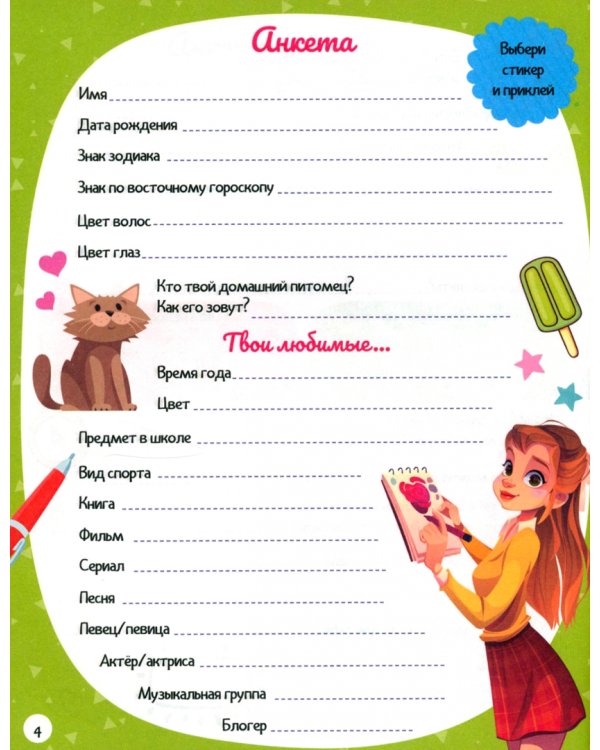 Анкета
Выбери
стикер
и приклей
Имя
Дата рождения
Знак зодиака
Знак по восточному гороскопу
Цвет волос
Цвет глаз
Кто твой домашний питомец?
Как его зовут?
Твои любимые...
Время года
Цвет
Предмет в школе
Вид спорта
Книга
Фильм
Сериал
Песня
Певец/певица
Актёр/актриса
Музыкальная группа
Блогер
4